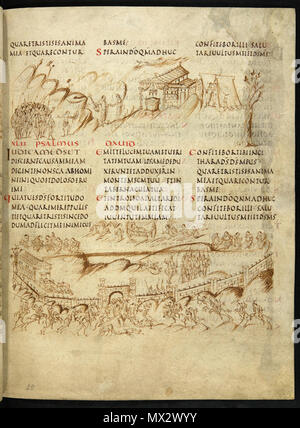 QUARETRISTISESANIMA
MEAETQUARECONTUR
BASME;
SPERAINDOQMADHUC
CONFITEBORILLISALU
TAREUULTUSMEIETDSMS
XLII PSALMUS DAUID
IUDICAMEDSET
DISCERNECAUSAMMEAM
DEGENTENONSCAABHOMI
NEINIQUOETDOLOSOERUE
ME
QUIATUESDSFORTITUDO
MEAQUAREMEREPPULIS
TIETQUARETRISTISINCEDO
DUMADFLIGITMEINIMICUS
EMITTELUCEMTUAMETUERI
TATEMTUAMIPSAMEDEDU
XERUNTETADDUXERIN
MONTEMSCMTUUETIN
TABERNACULATUA
ETINTROIBOADALTAREDI
ADDMQUILAETIFICAT
IUUENTUTEMMEAM
CONFITEBORTIBIIN
CITHARADSDSMEUS
QUARETRISTISESANIMA
MEAETQUARECONTUR
BASME
SPERAINDOQMADHUC
CONFITEBORILLISALU
TAREUULTUSMEIETDSMS
alamy
MX2WYY